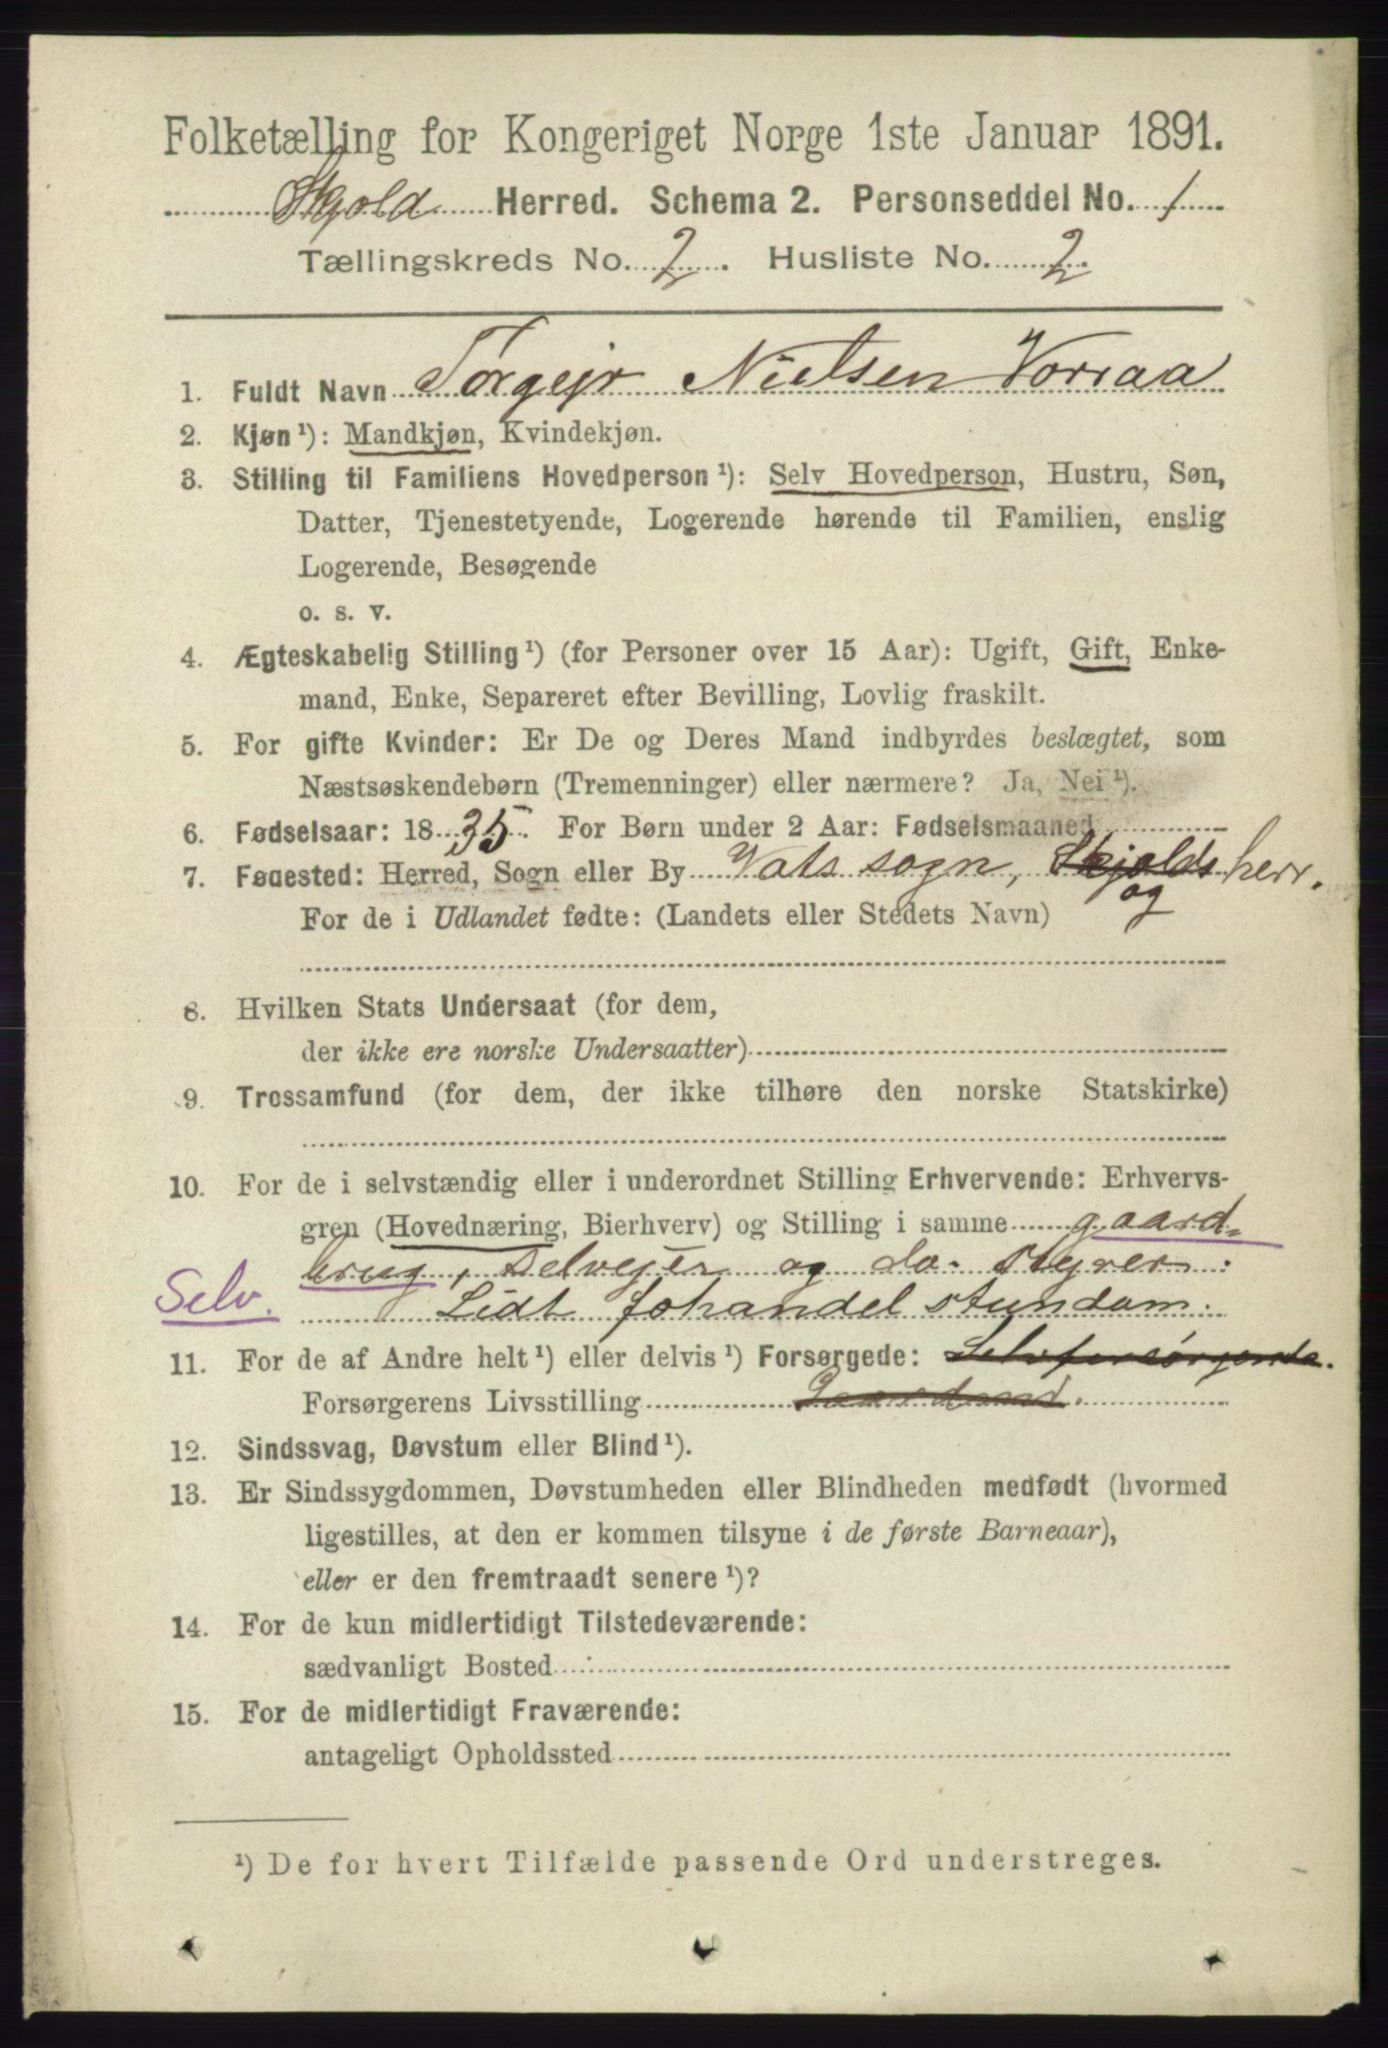 Folketælling for Kongeriget Norge 1ste Januar 1891.
Skjold Herred. Schema 2. Personseddel No. 1
Tællingskreds No. 2. Husliste No. 2.
1. Fuldt Navn Torgejr Nielsen Vorraa
2. Kjøn ¹): Mandkjøn, Kvindekjøn.
3. Stilling til Familiens Hovedperson ¹): Selv Hovedperson, Hustru, Søn,
Datter, Tjenestetyende, Logerende hørende til Familien, enslig
Logerende, Besøgende
o. s. v.
4. Ægteskabelig Stilling ¹) (for Personer over 15 Aar): Ugift, Gift, Enke-
mand, Enke, Separeret efter Bevilling, Lovlig fraskilt.
5. For gifte Kvinder: Er De og Deres Mand indbyrdes beslægtet, som
Næstsøskendebørn (Tremenninger) eller nærmere? Ja, Nei ¹).
6. Fødselsaar: 1835. For Børn under 2 Aar: Fødselsmaaned
7. Fødested: Herred, Sogn eller By Vats sogn, Skjolds herr.
og
For de i Udlandet fødte: (Landets eller Stedets Navn)
8. Hvilken Stats Undersaat (for dem,
der ikke ere norske Undersaatter)
9. Trossamfund (for dem, der ikke tilhøre den norske Statskirke)
10. For de i selvstændig eller i underordnet Stilling Erhvervende: Erhvervs-
gren (Hovednæring, Bierhverv) og Stilling i samme gaard-
brug, Selvejer og do.
Selv. Lidt fehandel stundom.
11. For de af Andre helt ¹) eller delvis ¹) Forsørgede: Selvforsørgende.
Forsørgerens Livsstilling
12. Sindssvag, Døvstum eller Blind ¹).
13. Er Sindssygdommen, Døvstumheden eller Blindheden medfødt (hvormed
ligestilles, at den er kommen tilsyne i de første Barneaar),
eller er den fremtraadt senere ¹)?
14. For de kun midlertidigt Tilstedeværende:
sædvanligt Bosted
15. For de midlertidigt Fraværende:
antageligt Opholdssted
¹) De for hvert Tilfælde passende Ord understreges.